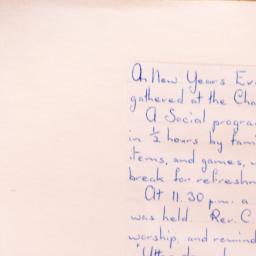 On New Years Ev
gathered at the Cha
A Social progra
in ½ hours by fami
items, and games, w
break for refreshm
At 11.30 p.m. a
was held. Rev. C
worship, and remind